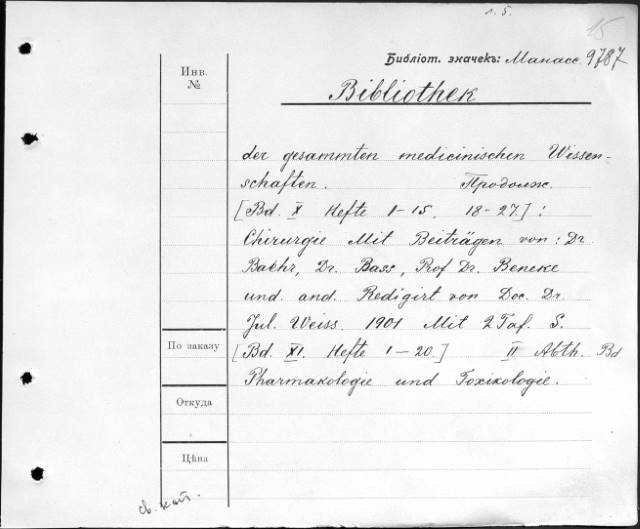 1. 5.
15
Библіот. значекъ: Манасс. 9787
Инв.
№
Bibliothek
der gesammten medicinischen Wissen-
schaften. Продолж.
[Bd. X Hefte 1-15. 18-27.] :
Chirurgie Mit Beiträgen von: Dr.
Baehr, Dr. Bass, Prof Dr. Beneke
und. and. Redigirt von Doc. Dr.
Jul. Weiss. 1901 Mit 2 Taf. S.
По заказу
[Bd. XI. Hefte 1-20.] II Abth. Bd
Pharmakologie und Toxikologie.
Откуда
Цѣна
св. кат.